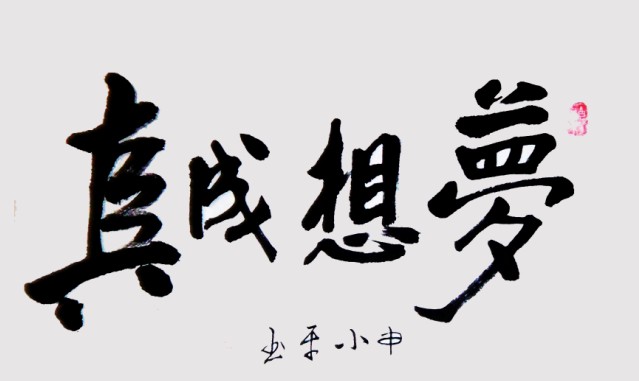 夢想成真
申小平书